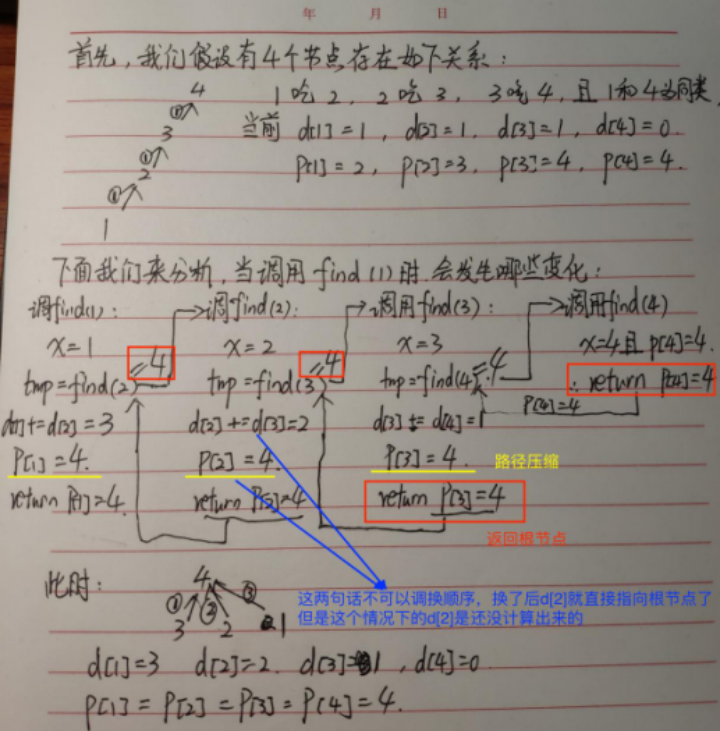 年 月 日
首先，我们假设有4个节点存在如下关系：
4 1吃2，2吃3，3吃4，且1和4为同类，
① 当前 d[1]=1，d[2]=1，d[3]=1，d[4]=0.
3 P[1]=2，P[2]=3，P[3]=4，P[4]=4.
①
2
①
1
下面我们来分析，当调用 find(1)时，会发生哪些变化：
调find(1)： 调find(2)： 调用find(3)： 调用find(4)
x=1 =4 x=2 =4 x=3 =4 x=4且P[4]=4.
tmp=find(2) tmp=find(3) tmp=find(4) ∴return P[4]=4
P[4]=4
d[1]+=d[2]=3 d[2]+=d[3]=2 d[3]+=d[4]=1
P[1]=4. P[2]=4. P[3]=4. 路径压缩
return P[1]=4. return P[2]=4 return P[3]=4
返回根节点
此时： 4
① ② ③
3 2 1
这两句话不可以调换顺序，换了后d[2]就直接指向根节点了
但是这个情况下的d[2]是还没计算出来的
d[1]=3 d[2]=2. d[3]=1，d[4]=0
P[1]=P[2]=P[3]=P[4]=4.